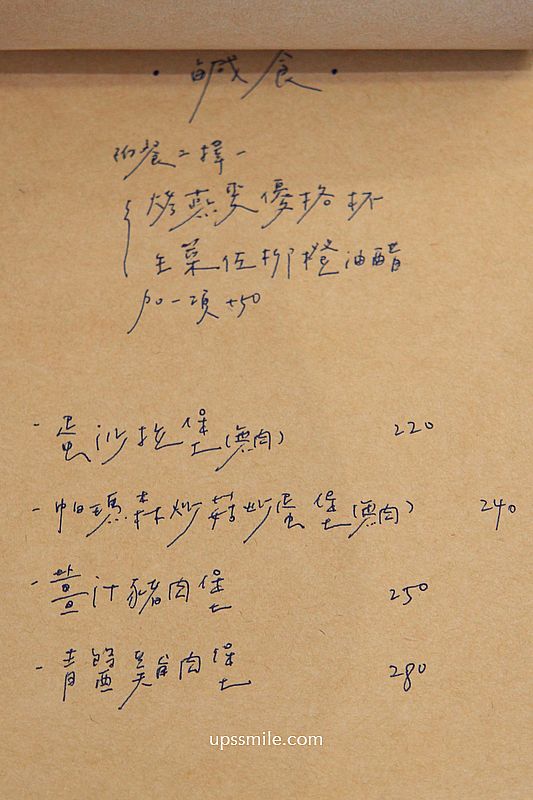 ·鹹食·
附餐二擇一
烤燕麥優格杯
生菜佐柳橙油醋
加一項+50
-蛋沙拉堡(無肉) 220
-帕瑪森炒菇炒蛋堡(無肉) 240
-薑汁豬肉堡 250
-青醬雞肉堡 280
upssmile.com